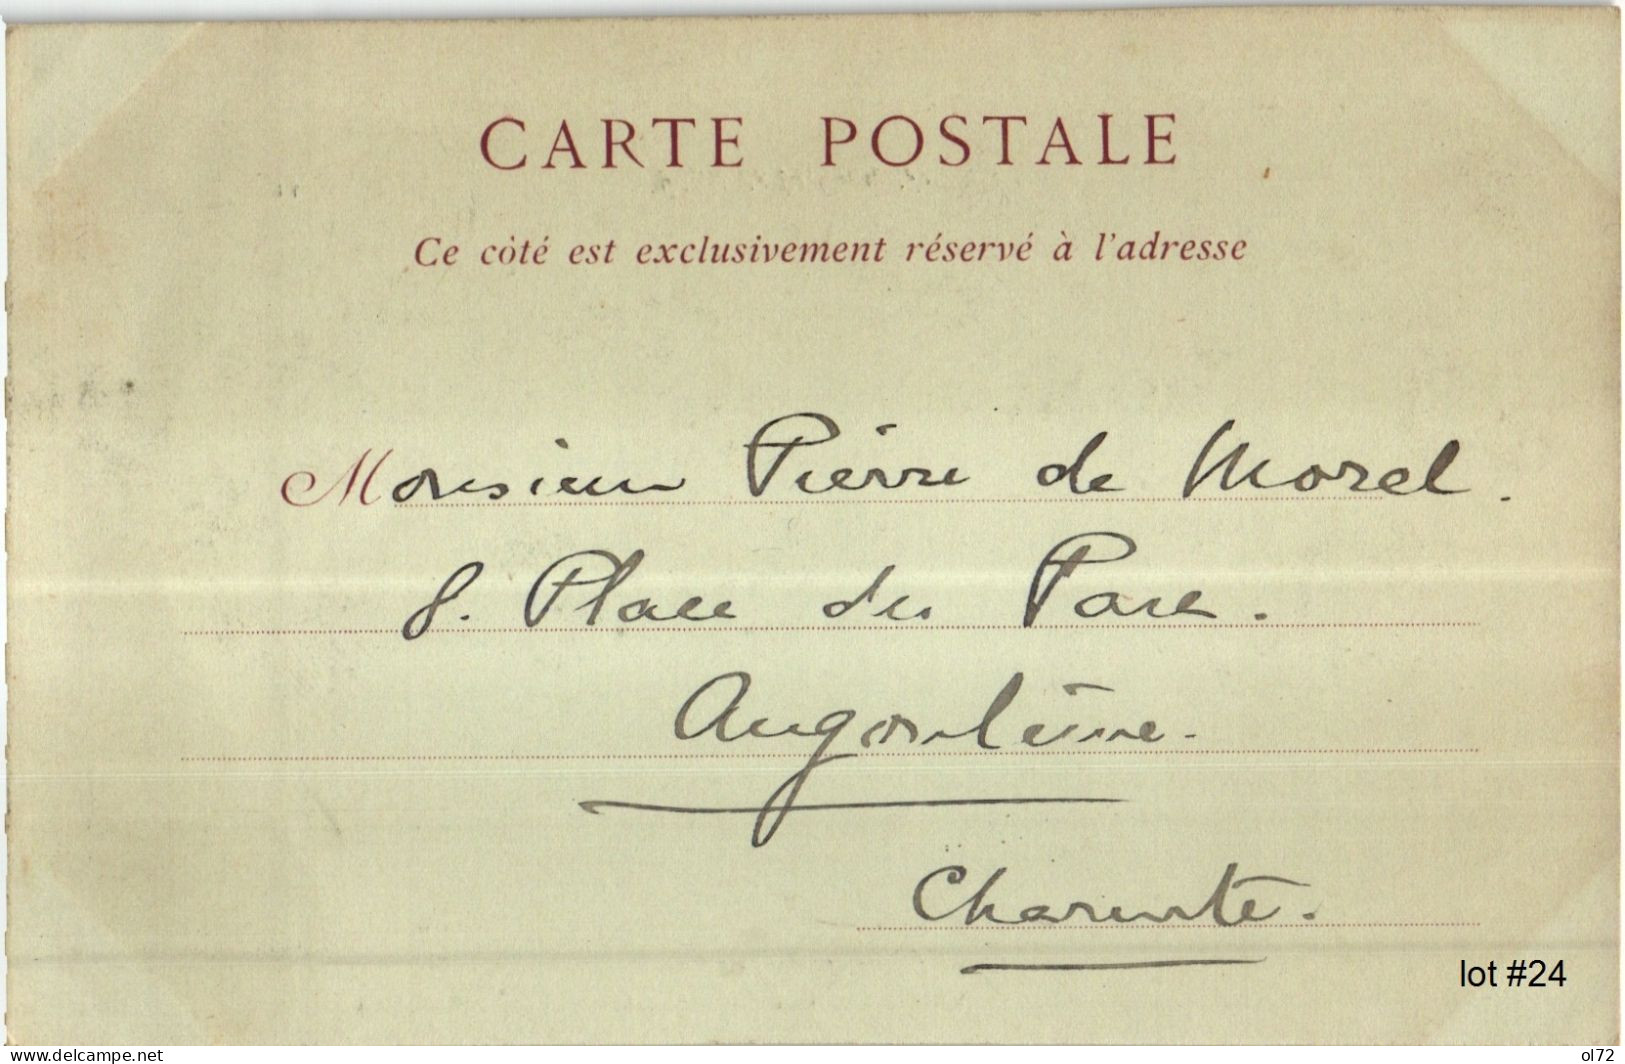 CARTE POSTALE
Ce côté est exclusivement réservé à l'adresse
Monsieur Pierre de Morel.
8. Place du Parc.
Angoulême.
Charente.
lot #24
delcampe.net
ol72